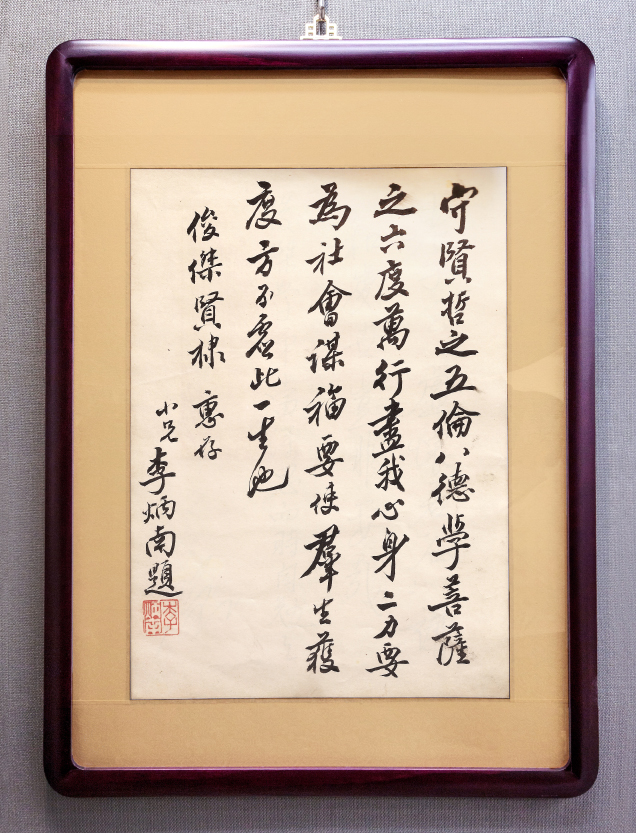 守賢哲之五倫八德學菩薩
之六度萬行盡我心身二力要
為社會謀福要使羣生獲
度方不虛此一生也
俊傑賢棣 惠存
小兄李炳南題
李炳南